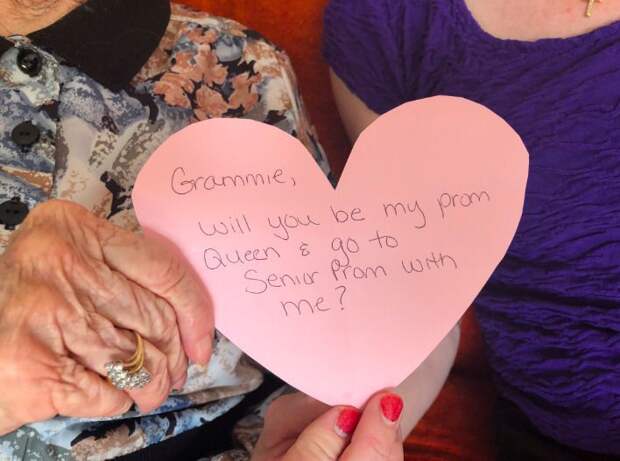 Grammie,
will you be my prom
Queen & go to
Senior Prom with
me?